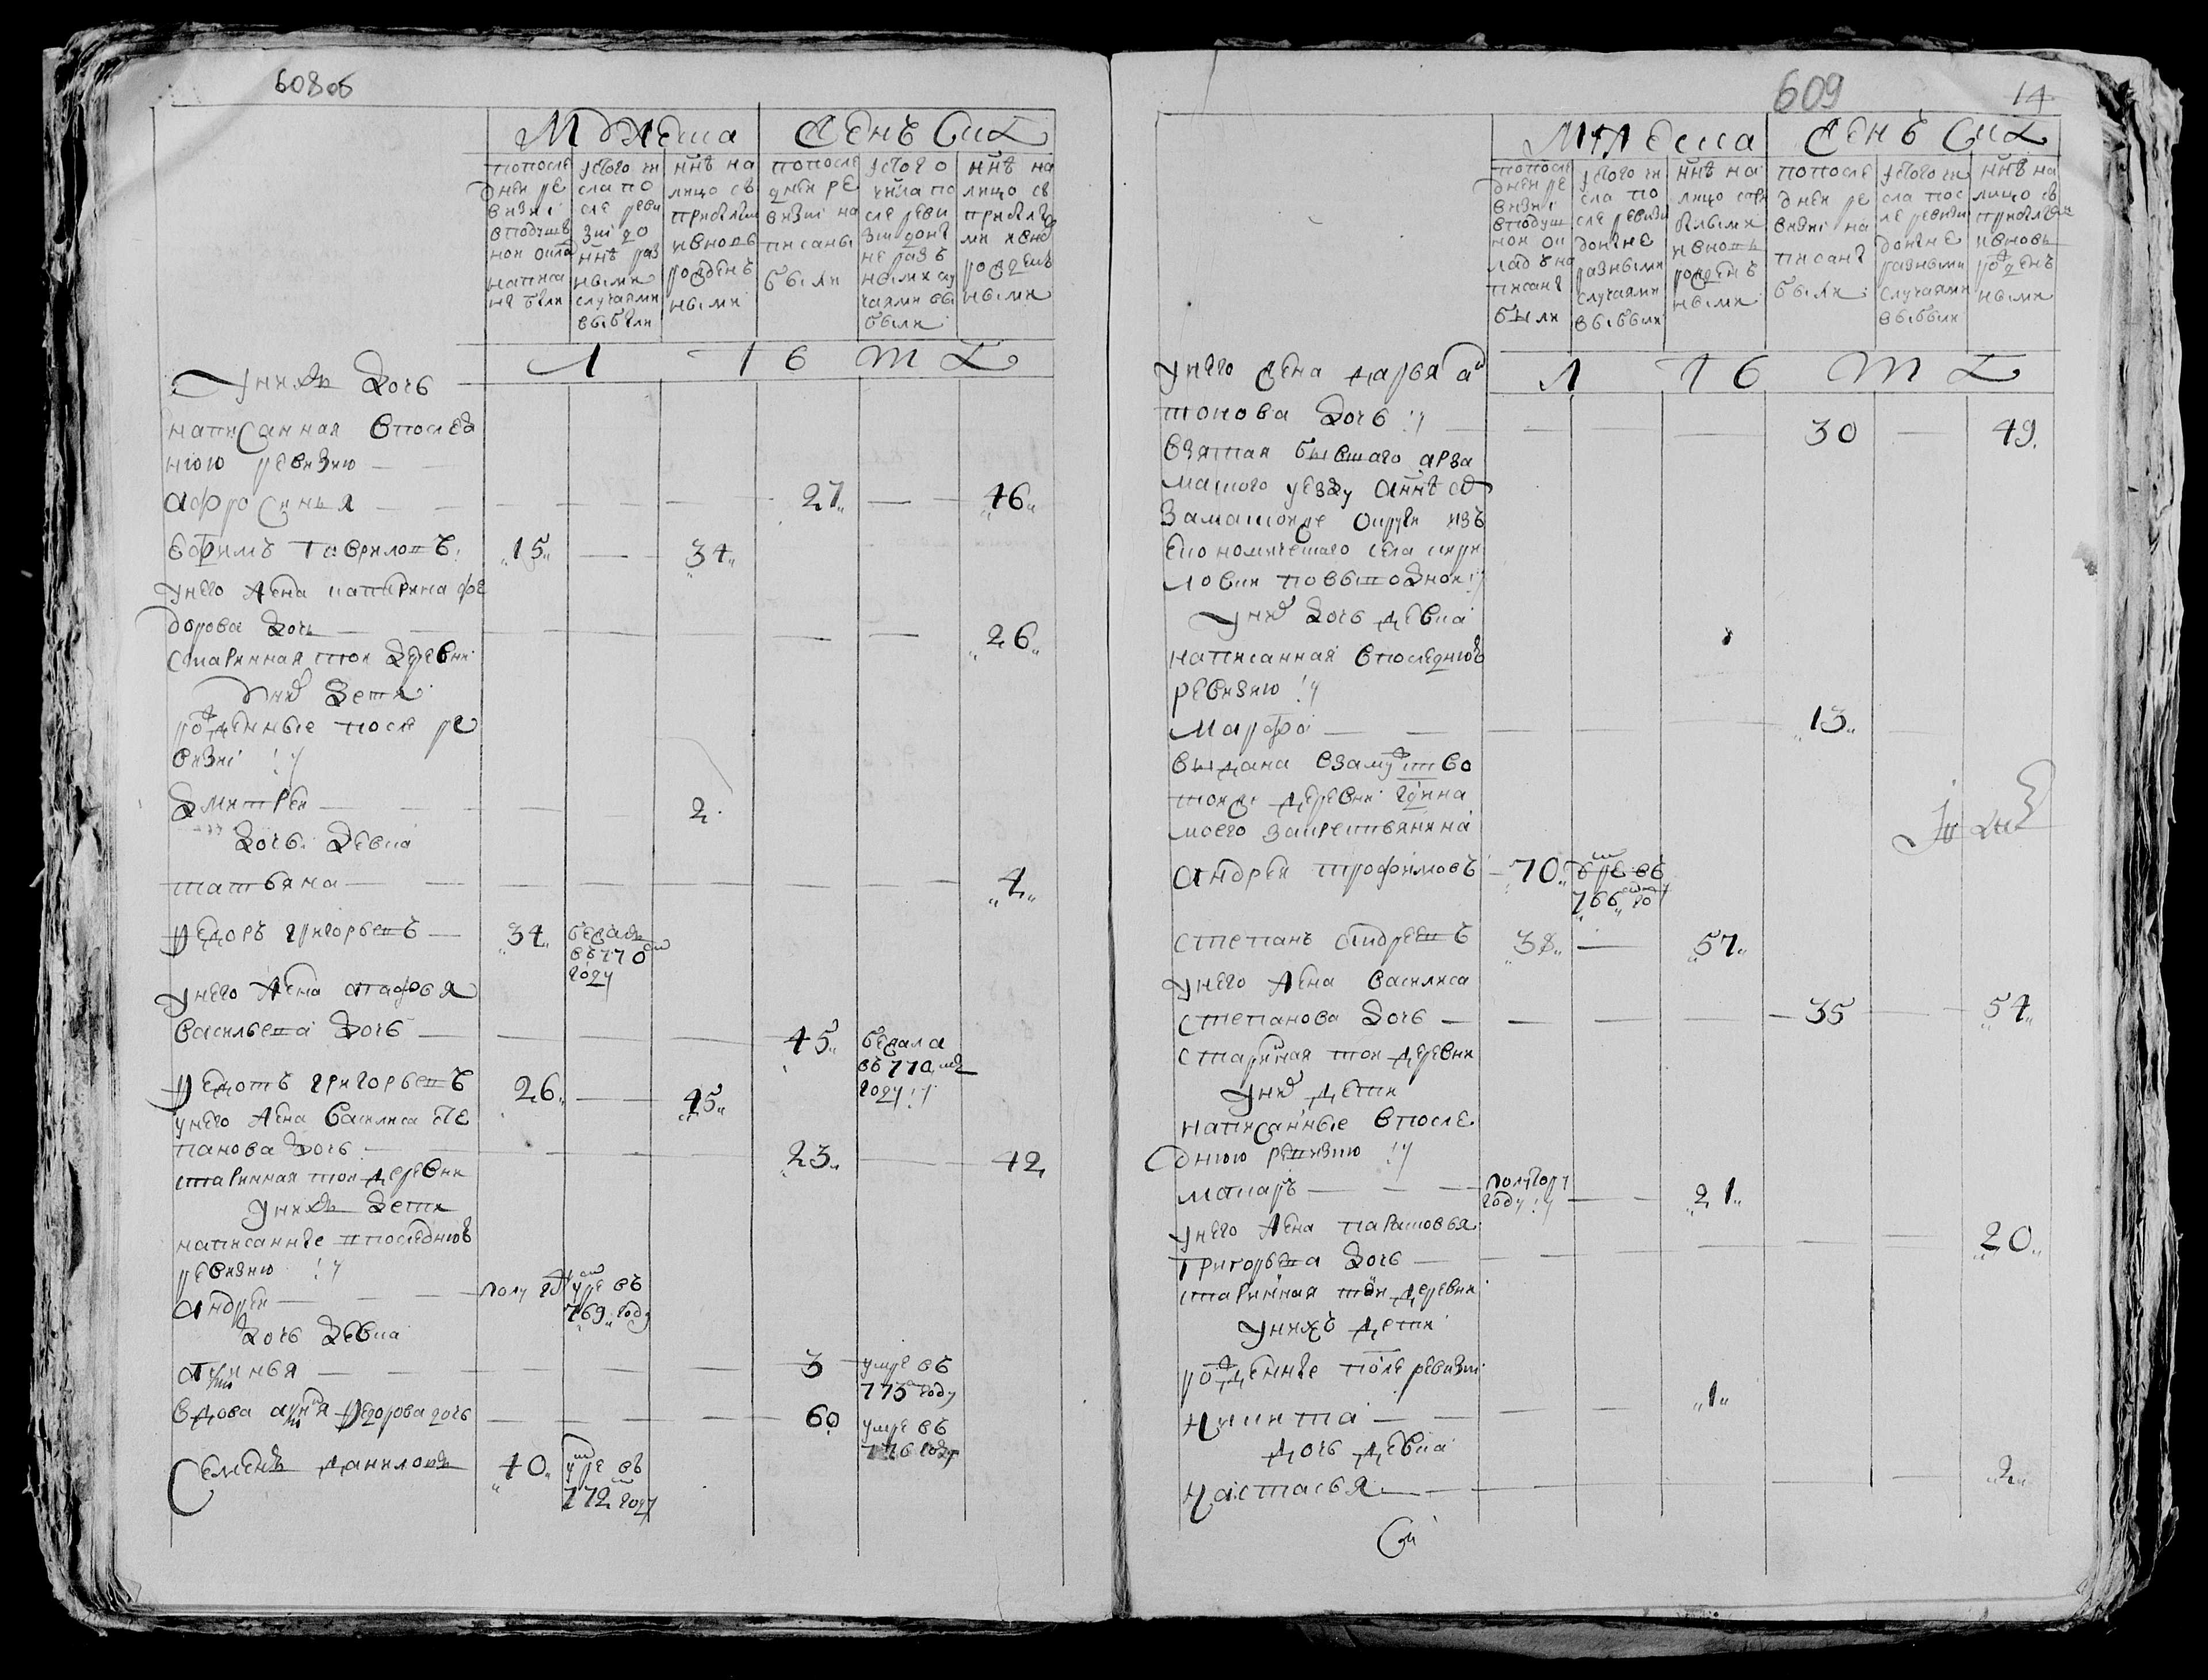 608об
Мужеска Женска
попосле
дней ре
визиі
вподушъ
ной окла
написа
ны были
ис того чи
сла по
сле реви
зиі до
ннѣ раз
ными
случаями
выбыли
ннѣ на
лицо съ
прибылы
ми вновь
рожденъ
ными
попосле
дней ре
визиі на
писаны
были
ис того
числа по
сле реви
зиі доны
не разъ
ными слу
чаями вы
были
ннѣ на
лицо съ
прибылы
ми и вно
рожденъ
ными
Л Т Б Т А
у них дочь
написанная впослед
нюю ревизию
афросинья 27 46
ефимъ гавриловъ 15 34
у него жена катерина фе
дорова дочь 26
старинная той деревни
у них дети
рожденные после ре
визиі
дмитрей 2
дочь девка
татьяна 4
федоръ григорьевъ 34 бежал
въ 770
году
у него жена агафья
васильева дочь 45 бежала
въ 770
году
федотъ григорьевъ 26 45
у него жена василиса сте
панова дочь 23 42
старинная той деревни
у них дети
написанные впоследнюю
ревизию
андрей полу году умре въ
769 году
дочь девка
3 умре въ
775 году
вдова федорова дочь 60 умре въ
776 году
Семенъ даниловъ 40 умре въ
772 году
609 14
Мужеска Женска
попосле
дней ре
визиі
вподуш
ной ок
ладъ на
писаны
были
ис того чи
сла по
сле ревизи
доныне
разными
случаями
выбыли
ннѣ на
лицо с при
былыми
и вновь
рожденъ
ными
попосле
дней ре
визиі на
писаны
были
ис того чи
сла пос
ле ревизи
доныне
разными
случаями
выбыли
ннѣ на
лицо съ
прибылы
и вновь
рожденъ
ными
Л Т Б Т А
у него жена дарья ан
тонова дочь 30 49
взятая бывшаго арза
маского уезду аннѣ ар
замаскойже округи изъ
економического села кири
ловки повыводной
у них дочь девка
написанная впоследнюю
ревизию
марфа 13
выдана взамужство
тойже деревни
моего закрестьянина
андрей трофимовъ 70 умре въ
766 году
степанъ андреевъ 38 57
у него жена василиса
степанова дочь 35 54
старинная той деревни
у них дети
написанные впосле
днюю ревизию
макаръ полутору
году 21
у него жена парасковья
григорьева дочь 20
старинная той деревни
у нихъ дети
рожденные после ревизиі
никита 1
дочь девка
настасья 2